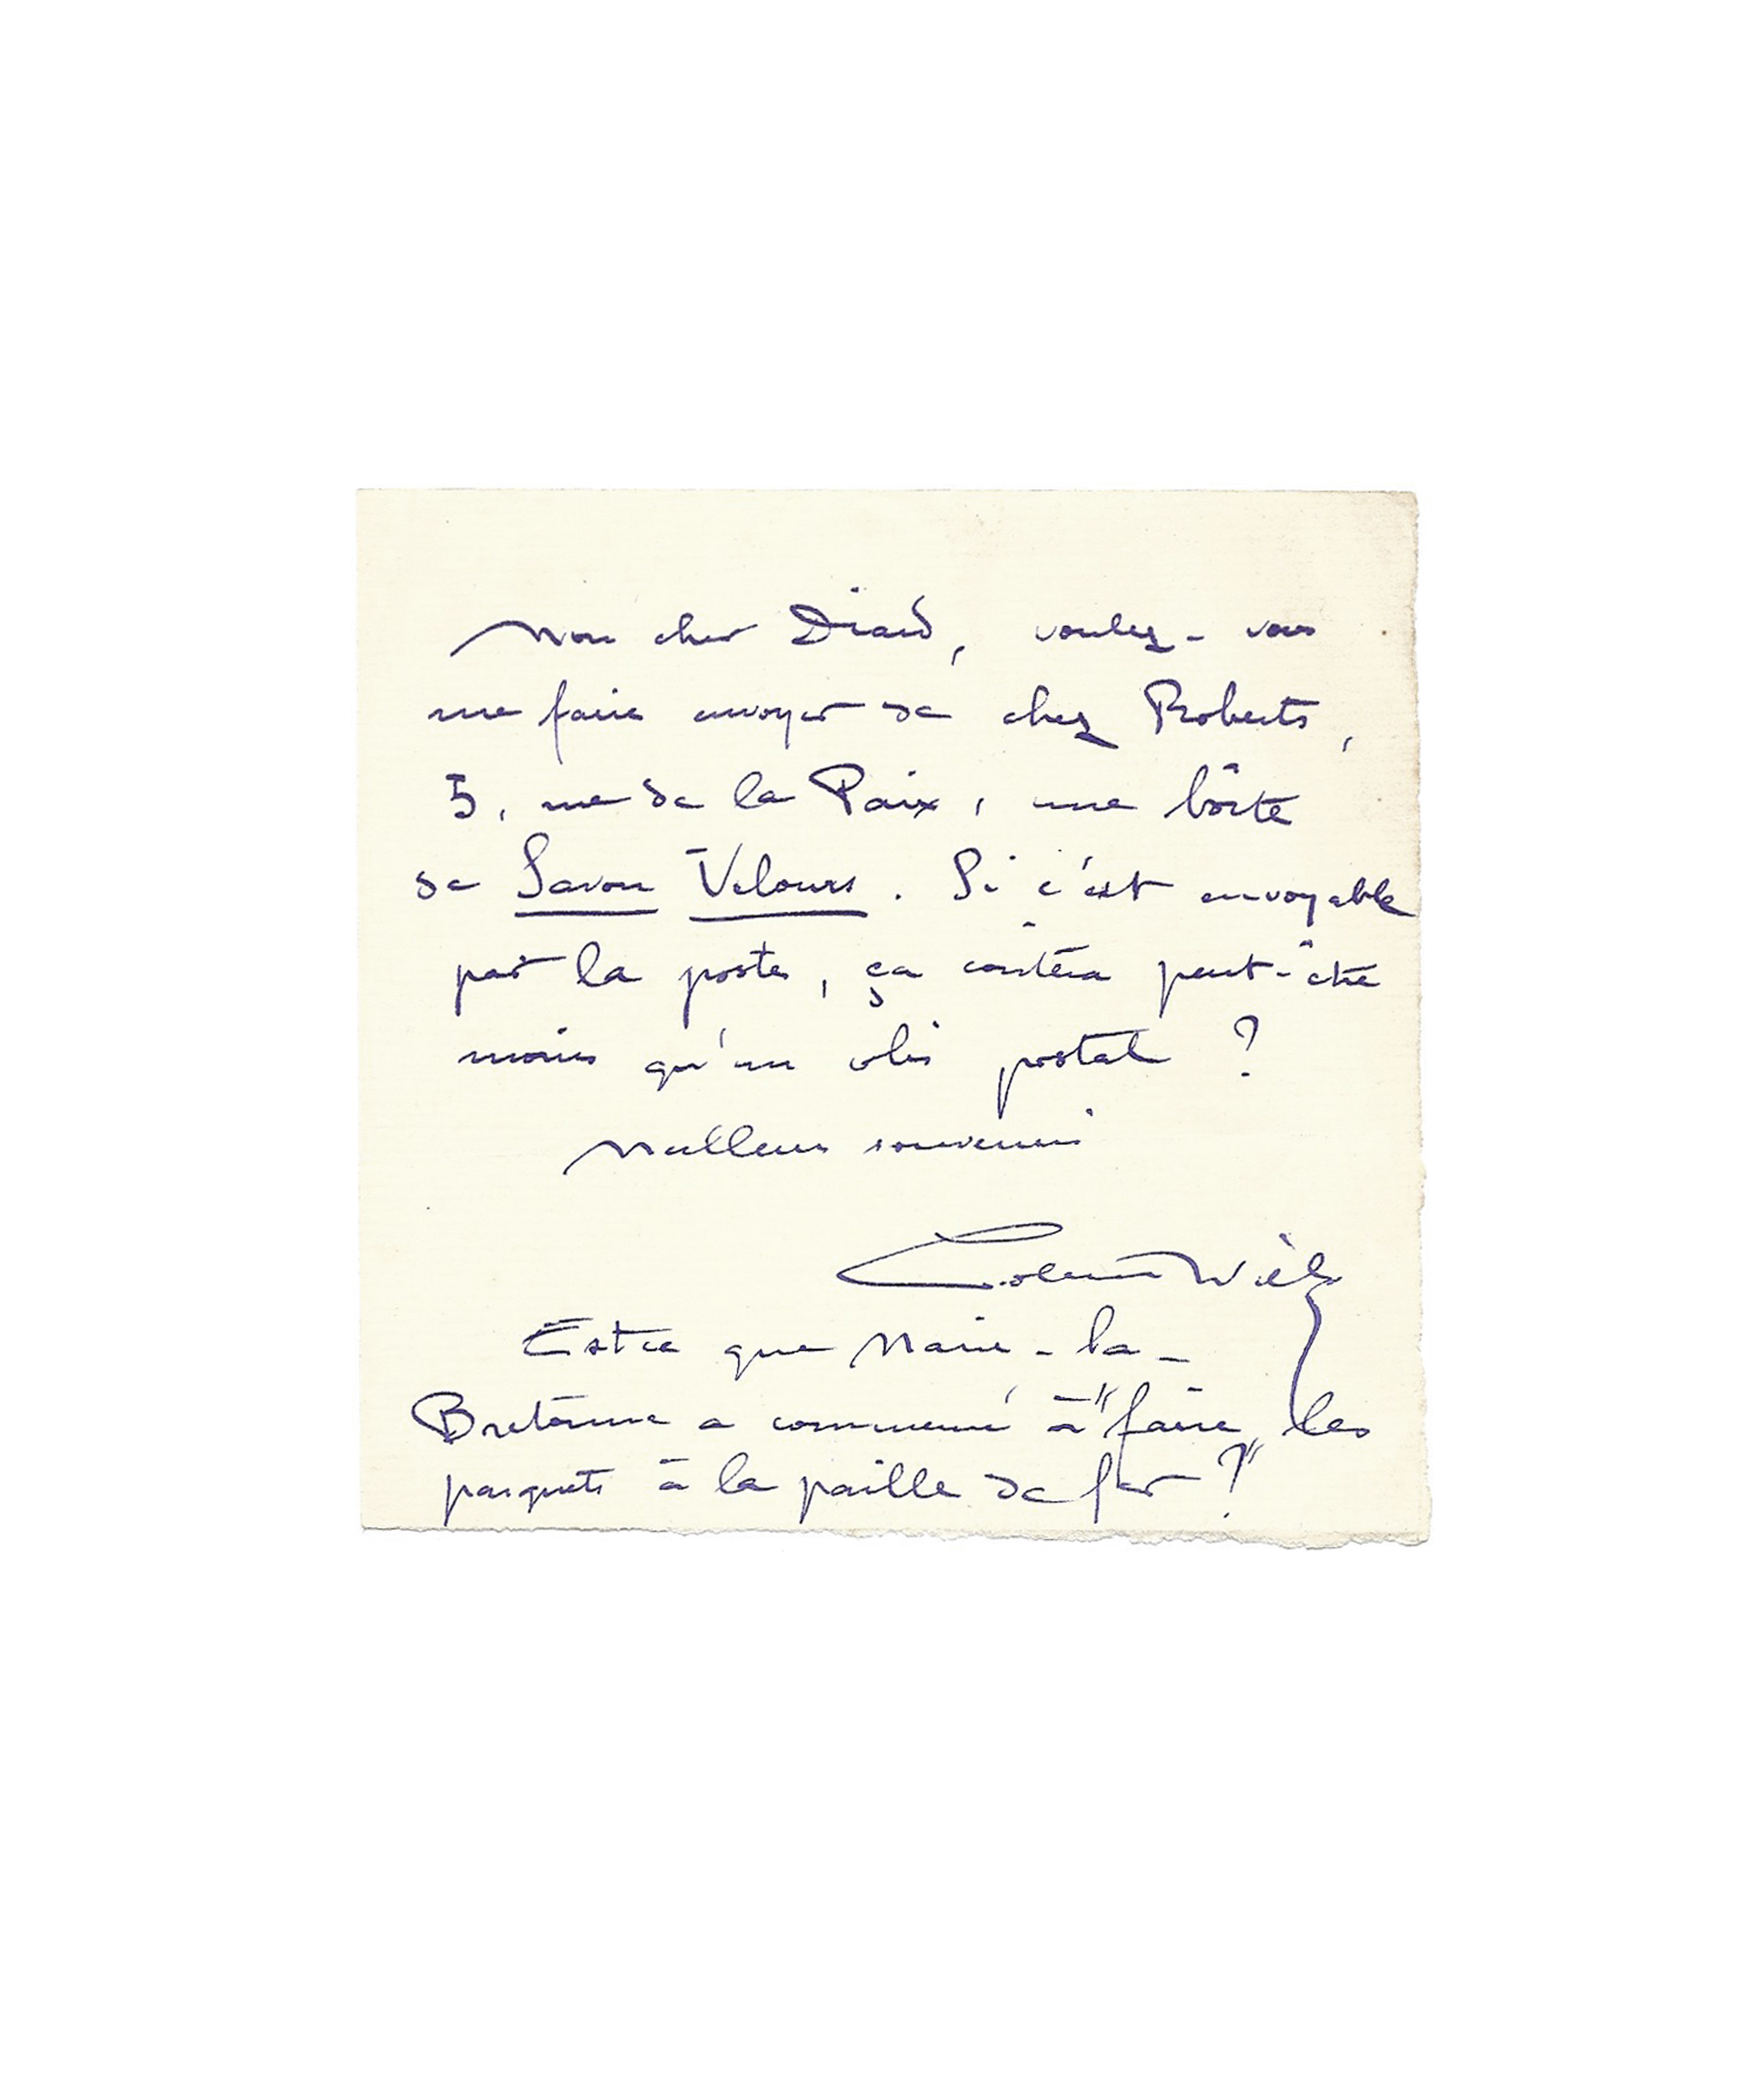 Mon cher Diard, voulez-vous
me faire envoyer de chez Roberts,
5, rue de la Paix, une boîte
de Savon Velours. Si c'est envoyable
par la poste, ça coûtera peut-être
moins qu'un colis postal ?
Meilleurs souvenirs
Colette Willy
Est ce que Marie-la-
Bretonne a commencé à "faire" les
parquets à la paille de fer ?